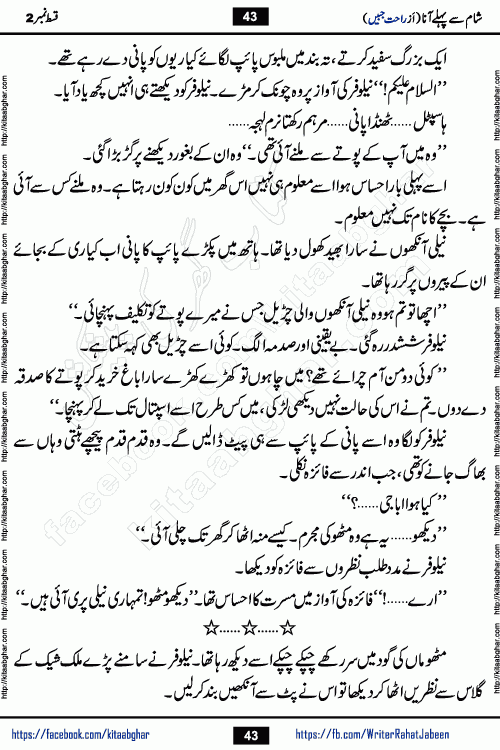 قسط نمبر 2
43
شام سے پہلے آنا (از راحت جبیں)
ایک بزرگ سفید کرتے، تہ بند میں ملبوس پائپ لگائے کیاریوں کو پانی دے رہے تھے۔
’’السلام علیکم!‘‘ نیلوفر کی آواز پر وہ چونک کر مڑے۔ نیلوفر کو دیکھتے ہی انہیں کچھ یاد آیا۔
ہاسپٹل ...... ٹھنڈا پانی ...... مرہم رکھتا نرم لہجہ ......
’’وہ میں آپ کے پوتے سے ملنے آئی تھی۔‘‘ وہ ان کے بغور دیکھنے پر گڑبڑا گئی۔
اسے پہلی بار احساس ہوا اسے معلوم ہی نہیں اس گھر میں کون کون رہتا ہے۔ وہ ملنے کس سے آئی
ہے۔ بچے کا نام تک نہیں معلوم۔
نیلی آنکھوں نے سارا بھید کھول دیا تھا۔ ہاتھ میں پکڑے پائپ کا پانی اب کیاری کے بجائے
ان کے پیروں پر گر رہا تھا۔
’’اچھا تو تم ہو وہ نیلی آنکھوں والی چڑیل جس نے میرے پوتے کو تکلیف پہنچائی۔‘‘
نیلوفر ششدر رہ گئی۔ بے یقینی اور صدمہ الگ۔ کوئی اسے چڑیل بھی کہہ سکتا ہے۔
’’کوئی دو من آم چرائے تھے؟ میں چاہوں تو کھڑے کھڑے سارا باغ خرید کر پوتے کا صدقہ
دے دوں۔ تم نے اس کی حالت نہیں دیکھی لڑکی، میں کس طرح اسے اسپتال تک لے کر پہنچا۔‘‘
نیلوفر کو لگا وہ اسے پانی کے پائپ سے ہی پیٹ ڈالیں گے۔ وہ قدم قدم پیچھے ہٹتی وہاں سے
بھاگ جانے کو تھی، جب اندر سے فائزہ نکلی۔
’’کیا ہوا اباجی ......؟‘‘
’’دیکھو ...... یہ ہے وہ مٹھو کی مجرم۔ کیسے منہ اٹھا کر گھر تک چلی آئی۔‘‘
نیلوفر نے مدد طلب نظروں سے فائزہ کو دیکھا۔
’’ارے ......!‘‘ فائزہ کی آواز میں مسرت کا احساس تھا۔ ’’دیکھو مٹھو! تمہاری نیلی پری آئی ہیں۔‘‘
☆......☆......☆
مٹھو ماں کی گود میں سر رکھے چپکے چپکے اسے دیکھ رہا تھا۔ نیلوفر نے سامنے پڑے ملک شیک کے
گلاس سے نظریں اٹھا کر دیکھا تو اس نے پٹ سے آنکھیں بند کر لیں۔
https://facebook.com/kitaabghar
43
https://fb.com/WriterRahatJabeen
http://kitaabghar.com
facebook.com/kitaabghar